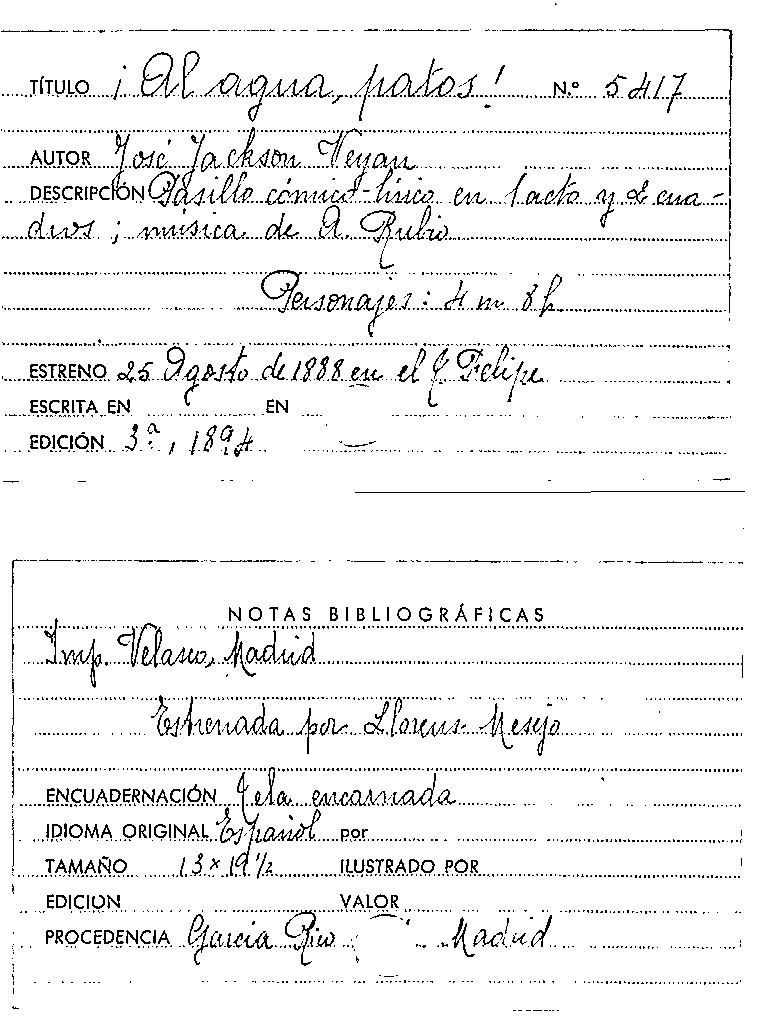 TÍTULO ¡Al agua, patos! N.º 5417
AUTOR José Jackson Veyan
DESCRIPCIÓN Pasillo cómico-lírico en 1 acto y 2 cua-
dros; música de A. Rubio
Personajes: 4 m 8 h
ESTRENO 25 Agosto de 1888 en el T. Felipe
ESCRITA EN EN
EDICIÓN 3.ª, 1894
NOTAS BIBLIOGRÁFICAS
Imp. Velasco, Madrid
Estrenada por Llorens-Mesejo
ENCUADERNACIÓN Tela encarnada
IDIOMA ORIGINAL Español por
TAMAÑO 13 x 19 1/2 ILUSTRADO POR
EDICION VALOR
PROCEDENCIA Garcia Rico Madrid